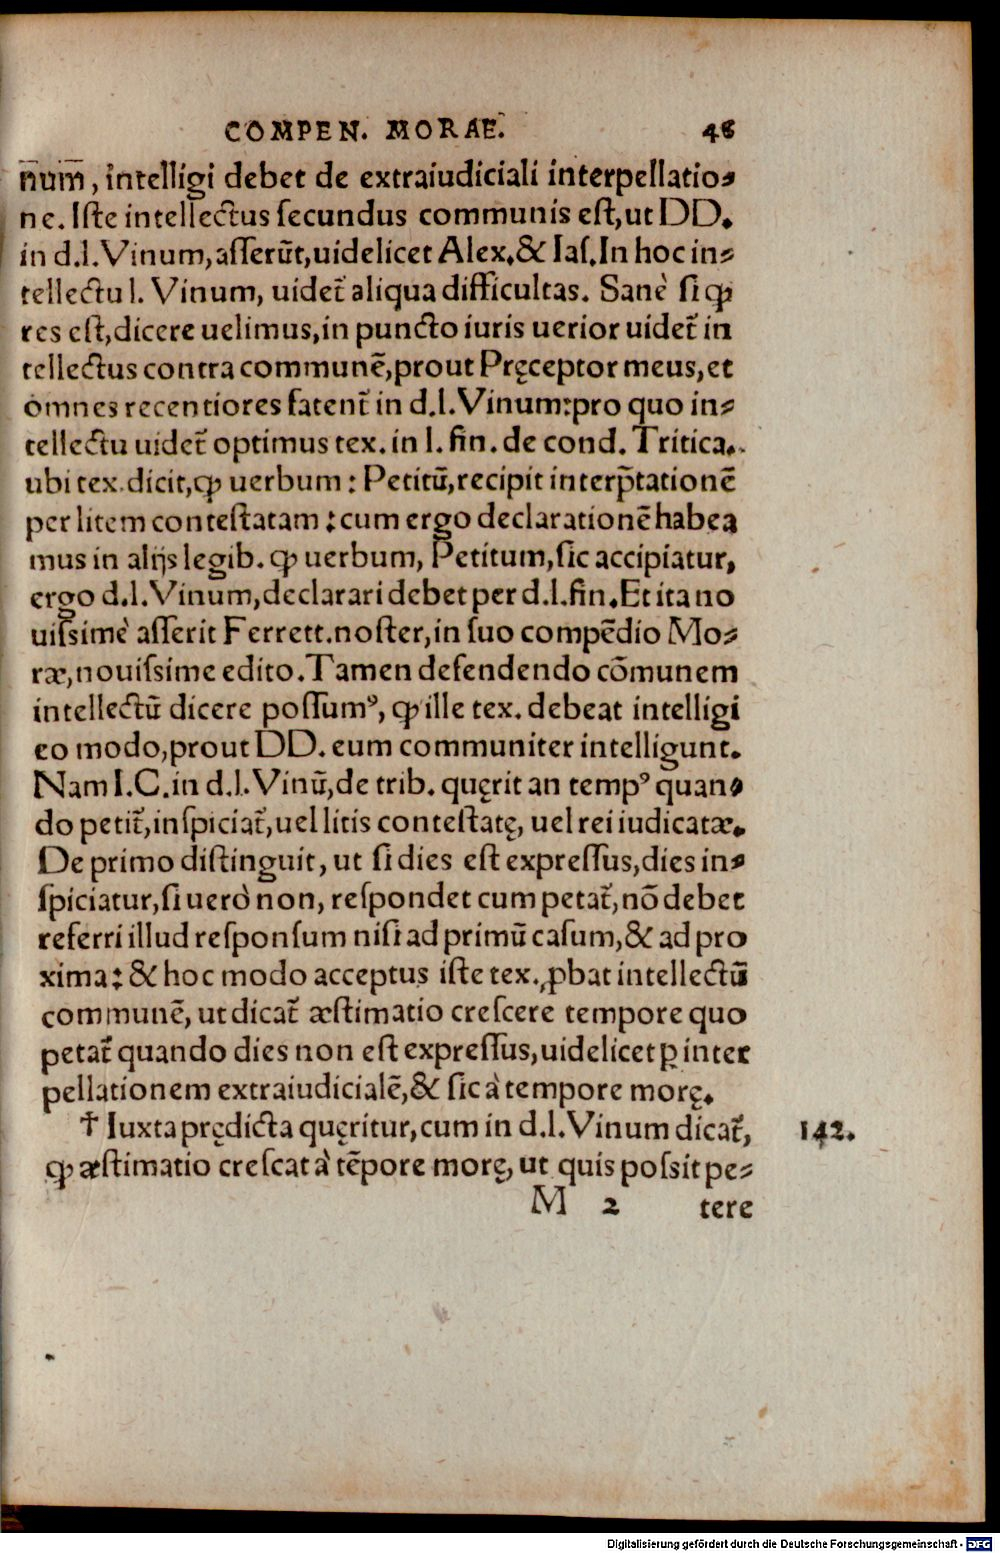 COMPEN. MORAE. 48
n̄um̄, intelligi debet de extraiudiciali interpellatio⸗
ne. Iſte intellectus ſecundus communis eſt, ut DD.
in d.l. Vinum, aſſerūt, uidelicet Alex. & Iaſ. In hoc in⸗
tellectu l. Vinum, uidet̃ aliqua difficultas. Sanè ſi ꝙ
res eſt, dicere uelimus, in puncto iuris uerior uidet̃ in
tellectus contra communē, prout Pręceptor meus, et
omnes recentiores fatent̃ in d.l. Vinum: pro quo in⸗
tellectu uidet̃ optimus tex. in l. fin. de cond. Tritica.
ubi tex. dicit, ꝙ uerbum: Petitū, recipit interp̃tationē
per litem conteſtatam: cum ergo declarationē habea
mus in alijs legib. ꝙ uerbum, Petitum, ſic accipiatur,
ergo d.l. Vinum, declarari debet per d.l. fin. Et ita no
uiſsimè aſſerit Ferrett. noſter, in ſuo compēdio Mo⸗
ræ, nouiſsime edito. Tamen defendendo cōmunem
intellectū dicere poſſumꝰ, ꝙ ille tex. debeat intelligi
eo modo, prout DD. eum communiter intelligunt.
Nam I.C. in d.l. Vinū, de trib. quęrit an tempꝰ quan⸗
do petit̃, inſpiciat̃, uel litis conteſtatę, uel rei iudicatæ.
De primo diſtinguit, ut ſi dies eſt expreſſus, dies in⸗
ſpiciatur, ſi uerò non, reſpondet cum petat̃, nō debet
referri illud reſponſum niſi ad primū caſum, & ad pro
xima: & hoc modo acceptus iſte tex. ꝓbat intellectū
communē, ut dicat̃ æſtimatio creſcere tempore quo
petat̃ quando dies non eſt expreſſus, uidelicet ꝑ inter
pellationem extraiudicialē, & ſic à tempore morę.
† Iuxta prędicta quęritur, cum in d.l. Vinum dicat̃, 142.
ꝙ æſtimatio creſcat à tēpore morę, ut quis poſsit pe⸗
M 2 tere
Digitalisierung gefördert durch die Deutsche Forschungsgemeinschaft - DFG